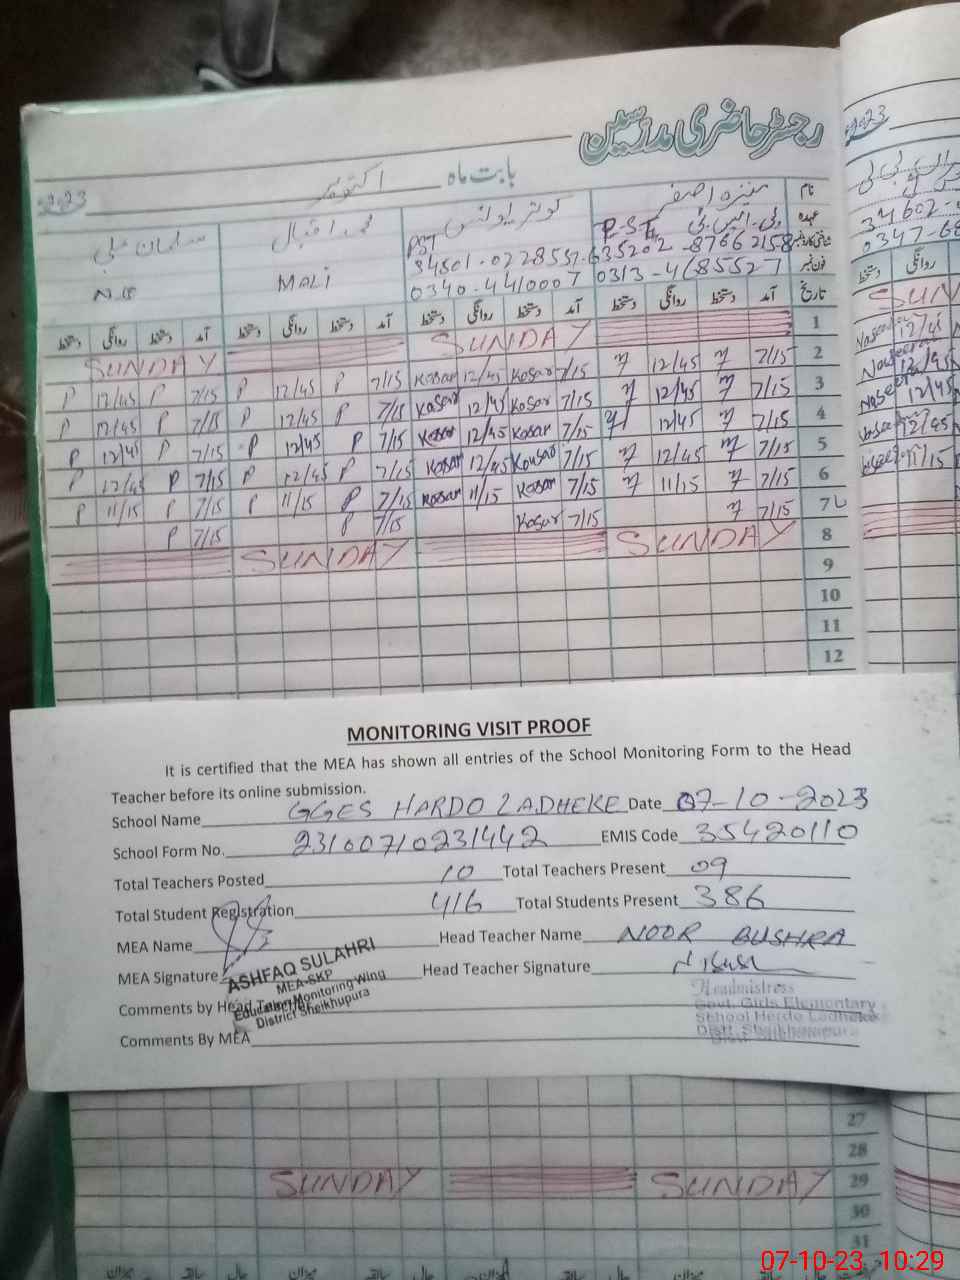 رجسٹر حاضری مدرسین
2023 بابت ماہ اکتوبر
نام منیزہ اصغر کوثر محمد اقبال سلمان علی
عہدہ پی.ایس.ٹی P.S.T PST MALI N.B
شناختی کارڈ نمبر
فون نمبر 0313-4685527 0340-4410007
تاریخ آمد دستخط روانگی دستخط آمد دستخط روانگی دستخط آمد دستخط روانگی دستخط آمد دستخط روانگی دستخط
1 SUNDAY SUNDAY
2 7/15 12/45 7/15 Kosar 12/45 Kosar 7/15 P 12/45 P 7/15 P 12/45 P
3 7/15 12/45 7/15 Kosar 12/45 Kosar 7/15 P 12/45 P 7/15 P 12/45 P
4 7/15 12/45 7/15 Kosar 12/45 Kosar 7/15 P 12/45 P 7/15 P 12/45 P
5 7/15 12/45 7/15 Kousar 12/45 Kosar 7/15 P 12/45 P 7/15 P 12/45 P
6 7/15 11/15 7/15 Kosar 11/15 Kosar 7/15 P 11/15 P 7/15 P 11/15 P
7 7/15 7/15 Kosar 7/15 P 7/15 P
8 SUNDAY SUNDAY
9
10
11
12
MONITORING VISIT PROOF
It is certified that the MEA has shown all entries of the School Monitoring Form to the Head
Teacher before its online submission.
School Name GGES HARDO LADHEKE Date 07-10-2023
School Form No. 23100710231442 EMIS Code 35420110
Total Teachers Posted 10 Total Teachers Present 09
Total Student Registration 416 Total Students Present 386
MEA Name Head Teacher Name NOOR BUSHRA
MEA Signature Head Teacher Signature
ASHFAQ SULAHRI
MEA-SKP
Education Monitoring Wing
District Sheikhupura
Headmistress
Govt. Girls Elementary
School Herdo Ladheke
Distt. Sheikhupura
Comments by Head Teacher
Comments By MEA
27
28
29 SUNDAY SUNDAY
30
31
07-10-23 10:29